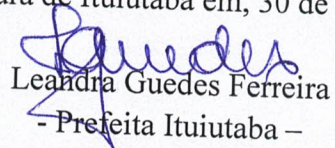 de Ituiutaba em, 30 de
Guedes
Leandra Guedes Ferreira
- Prefeita Ituiutaba –